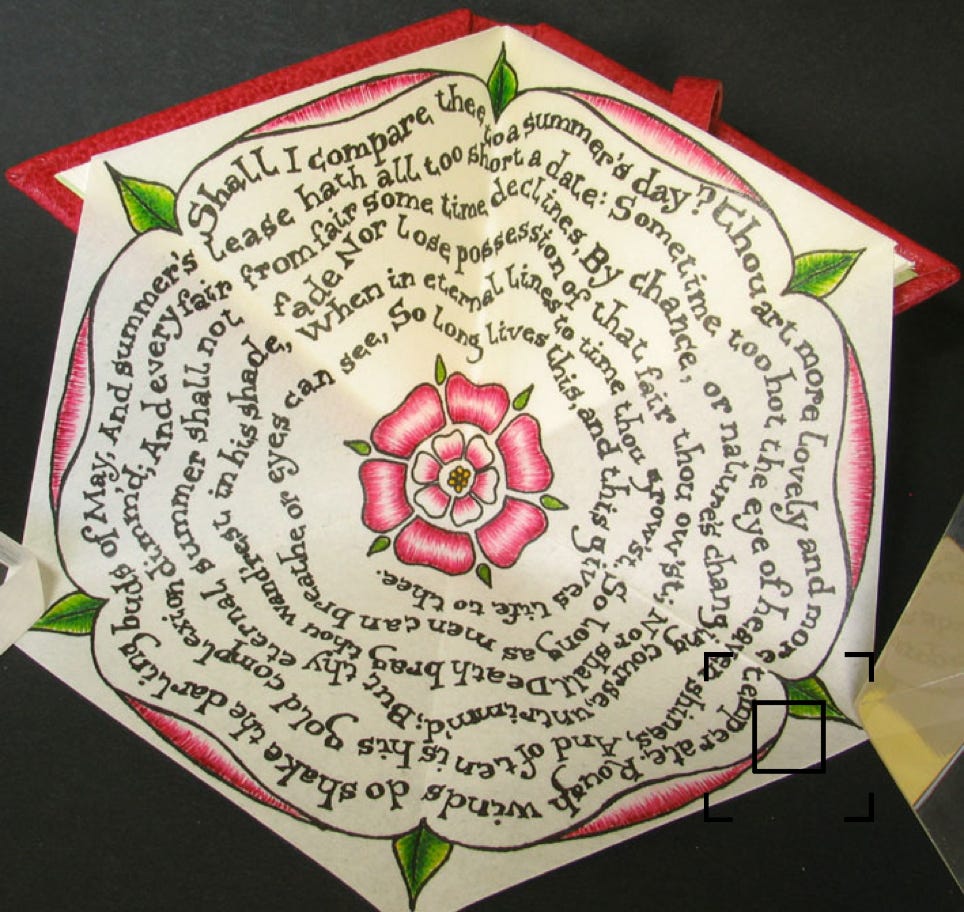 Shall I compare thee to a summer's day? Thou art more lovely and more temperate: Rough winds do shake the darling buds of May, And summer's
Lease hath all too short a date: Sometime too hot the eye of heaven shines, And often is his gold complexion dimm'd; And every fair
from fair some time declines, By chance, or nature's changing course, untrimm'd; But thy eternal summer shall not
fade Nor Lose possession of that fair thou ow'st; Nor shall Death brag thou wandrest in his shade,
When in eternal lines to time thou grow'st. So long as men can breathe or eyes can
see, So long lives this, and this gives life to thee.